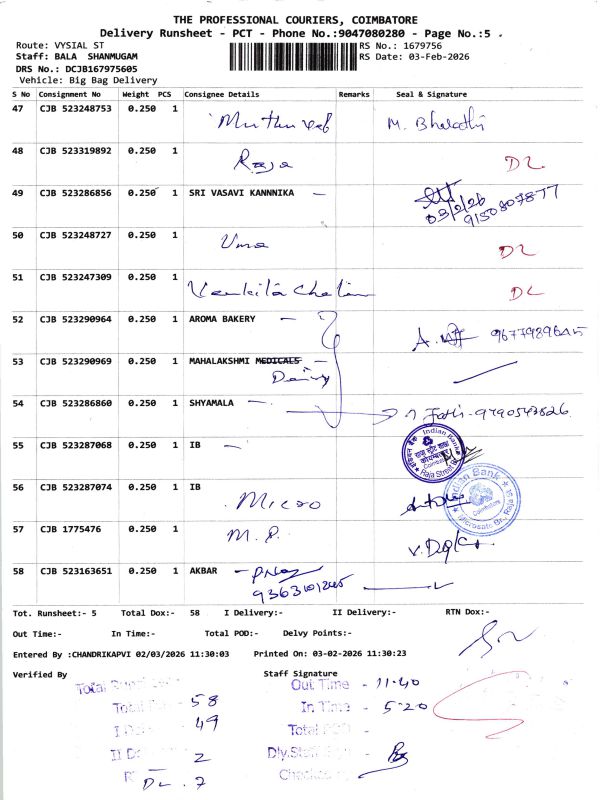 THE PROFESSIONAL COURIERS, COIMBATORE
Delivery Runsheet - PCT - Phone No.:9047080280 - Page No.:5
Route: VYSIAL ST
RS No.: 1679756
Staff: BALA SHANMUGAM
RS Date: 03-Feb-2026
DRS No.: DCJB167975605
Vehicle: Big Bag Delivery
S No Consignment No Weight PCS Consignee Details Remarks Seal & Signature
47 CJB 523248753 0.250 1 M. Bharathi
48 CJB 523319892 0.250 1 Raja DL
49 CJB 523286856 0.250 1 SRI VASAVI KANNNIKA
03/2/26
9150807877
50 CJB 523248727 0.250 1 Uma DL
51 CJB 523247309 0.250 1 DL
52 CJB 523290964 0.250 1 AROMA BAKERY
53 CJB 523290969 0.250 1 MAHALAKSHMI MEDICALS
Dairy
54 CJB 523286860 0.250 1 SHYAMALA
55 CJB 523287068 0.250 1 IB
Indian Bank
56 CJB 523287074 0.250 1 IB
Micro
Indian Bank
57 CJB 1775476 0.250 1 M. P.
58 CJB 523163651 0.250 1 AKBAR
Tot. Runsheet:- 5 Total Dox:- 58 I Delivery:- II Delivery:- RTN Dox:-
Out Time:- In Time:- Total POD:- Delvy Points:-
Entered By :CHANDRIKAPVI 02/03/2026 11:30:03 Printed On: 03-02-2026 11:30:23
Verified By Staff Signature
Out Time - 11-40
58
In Time - 5-20
49
Total POD -
2
DL - 7